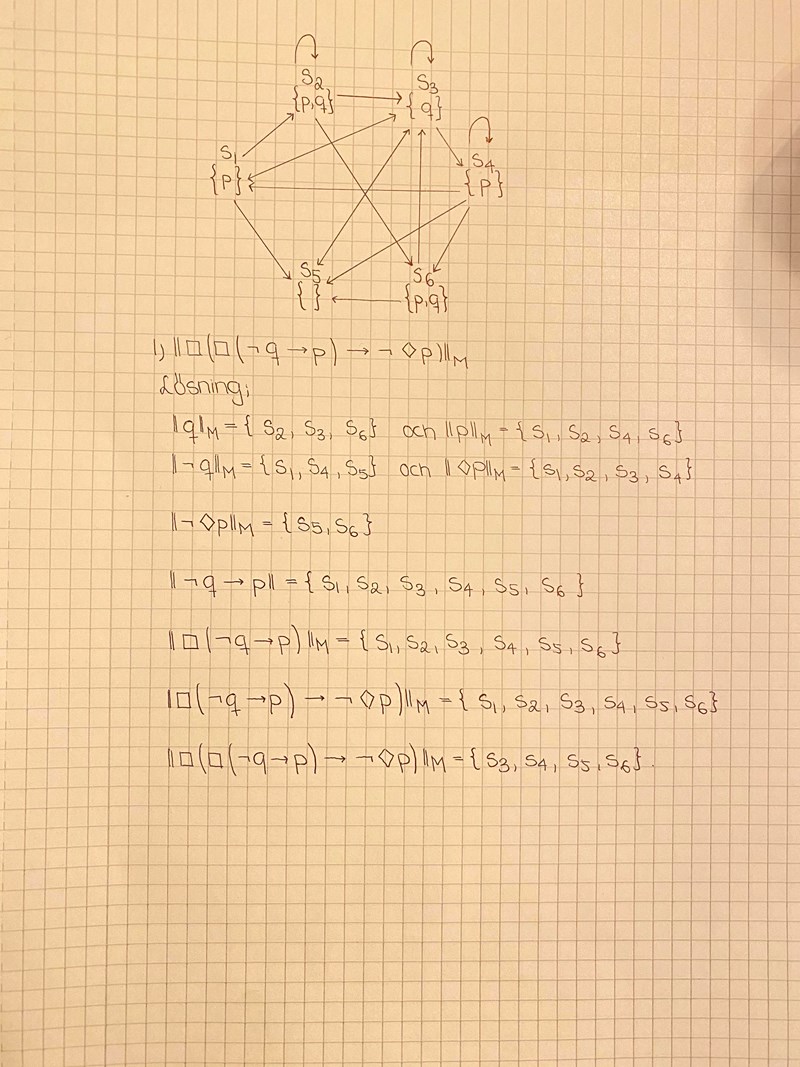 S2 S3
{p,q} {q}
S1 S4
{p} {p}
S5 S6
{ } {p,q}
1) ‖□(□(¬q→p)→¬◇p)‖M
Lösning;
‖q‖M = { S2, S3, S6} och ‖p‖M = { S1, S2, S4, S6}
‖¬q‖M = {S1, S4, S5} och ‖◇p‖M = {S1, S2, S3, S4}
‖¬◇p‖M = {S5, S6}
‖¬q→p‖ = { S1, S2, S3, S4, S5, S6 }
‖□(¬q→p)‖M = { S1, S2, S3, S4, S5, S6}
|□(¬q→p)→¬◇p)‖M = { S1, S2, S3, S4, S5, S6}
‖□(□(¬q→p)→¬◇p)‖M = { S3, S4, S5, S6}.